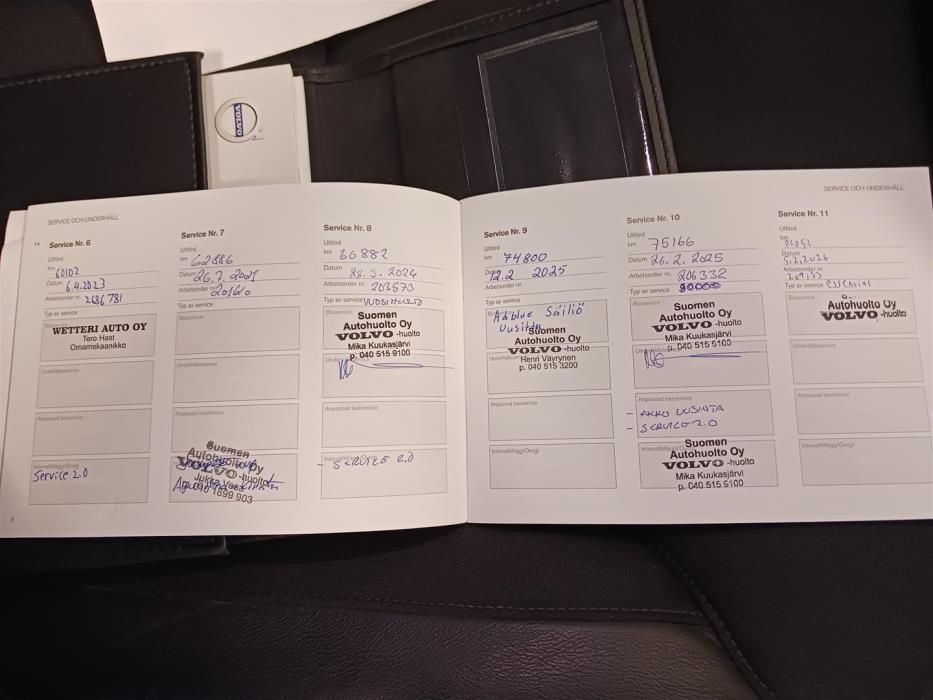 VOLVO
SERVICE OCH UNDERHÅLL
Service Nr. 6
Utförd
km 60102
Datum 6.4.2023
Arbetsorder nr. 2686781
Typ av service
Basservice
WETTERI AUTO OY
Tero Hast
Omamekaanikko
Underhållsservice
Anpassad basservice
Intervalltillägg/Övrigt
Service 2.0
8
Service Nr. 7
Utförd
km 62886
Datum
Arbetsorder nr.
Typ av service
Basservice
Underhållsservice
Anpassad basservice
Suomen
Autohuolto Oy
VOLVO -huolto
040 1899 903
Service Nr. 8
Utförd
km 66882
Datum 22.3.2024
Arbetsorder nr. 203573
Typ av service VUOSIHUOLTO
Suomen
Autohuolto Oy
VOLVO -huolto
Mika Kuukasjärvi
p. 040 515 9100
Anpassad basservice
Intervalltillägg/Övrigt
- SERVICE 2.0
SERVICE OCH UNDERHÅLL
Service Nr. 9
Utförd
km 74800
Datum 12.2 2025
Arbetsorder nr.
Typ av service
Adblue Säiliö
Uusittu
Suomen
Autohuolto Oy
VOLVO -huolto
Henri Väyrynen
p. 040 515 3200
Anpassad basservice
Intervalltillägg/Övrigt
Service Nr. 10
Utförd
km 75166
Datum 26.2.2025
Arbetsorder nr. 206332
Typ av service 90000
Suomen
Autohuolto Oy
VOLVO -huolto
Mika Kuukasjärvi
p. 040 515 9100
Anpassad basservice
- AKKU UUSINTA
- SERVICE 2.0
Suomen
Autohuolto Oy
VOLVO -huolto
Mika Kuukasjärvi
p. 040 515 9100
Service Nr. 11
Utförd
km
Datum 5.2.2026
Arbetsorder nr.
Typ av service essential
Autohuolto Oy
VOLVO -huolto
Underhållsservice
Anpassad basservice
Intervalltillägg/Övrigt